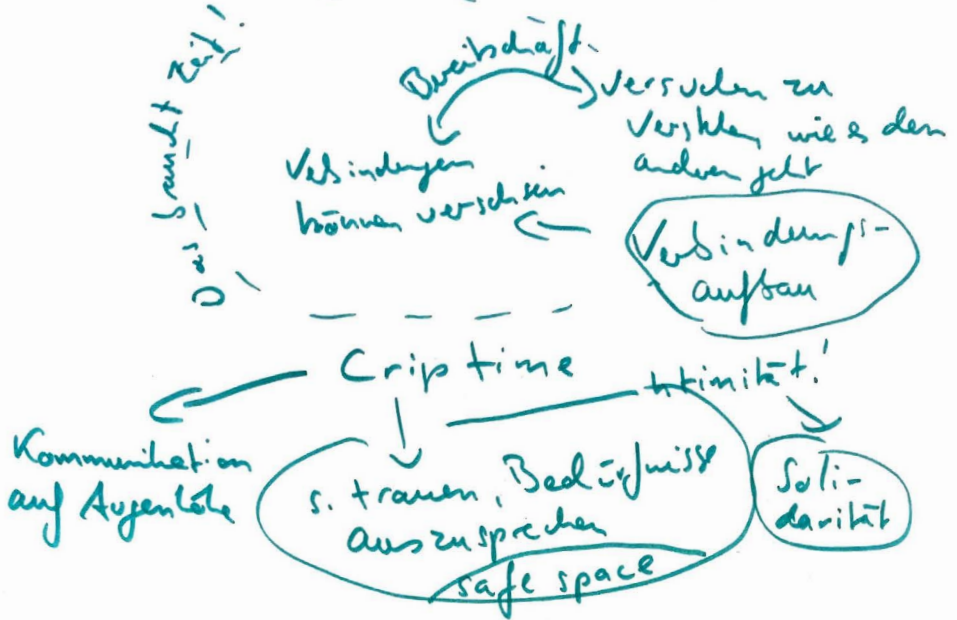 Das braucht Zeit!
Bereitschaft
versuchen zu
verstehen, wie es dem
anderen geht
Verbindungen
können verschsein
Verbindungs-
aufbau
Crip time
Intimität!
Kommunikation
auf Augenhöhe
s. trauen, Bedürfnisse
auszusprechen
safe space
Soli-
darität